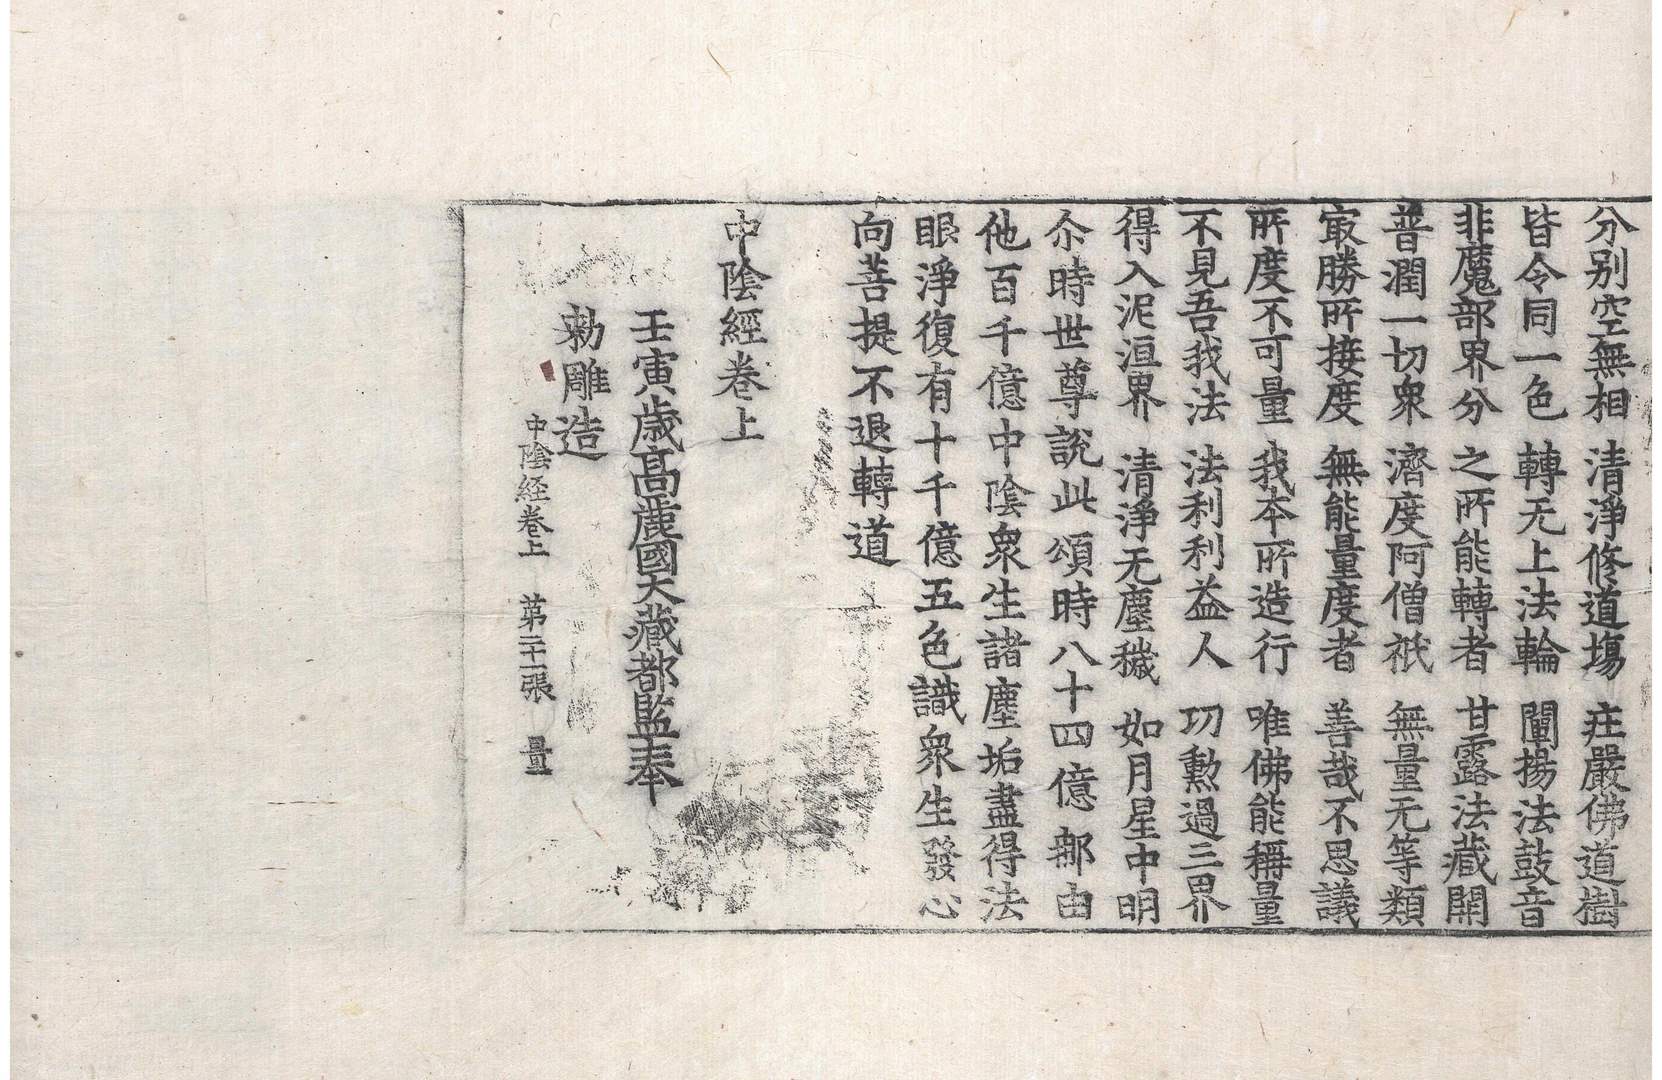 分别空無相 清淨修道場 庄嚴佛道樹
皆令同一色 轉无上法輪 闡揚法鼓音
非魔部界分 之所能轉者 甘露法藏開
普潤一切衆 濟度阿僧祇 無量无等類
冣勝所接度 無能量度者 善哉不思議
所度不可量 我本所造行 唯佛能稱量
不見吾我法 法利利益人 功勳過三界
得入泥洹界 清淨无塵穢 如月星中明
尒時世尊說此頌時八十四億郍由
他百千億中陰衆生諸塵垢盡得法
眼淨復有十千億五色識衆生發心
向菩提不退轉道
中陰經卷上
壬寅歲高麗國大藏都監奉
勑雕造
中陰経卷上 第二十一張 量